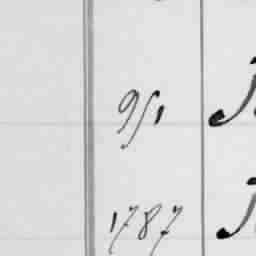 951
1787